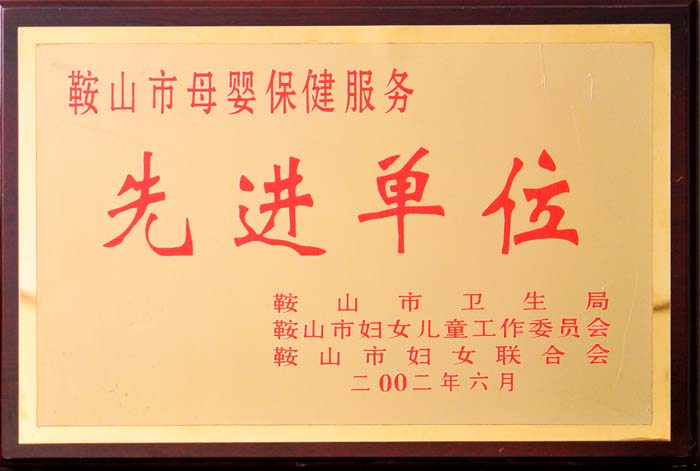 鞍山市母婴保健服务
先进单位
鞍山市卫生局
鞍山市妇女儿童工作委员会
鞍山市妇女联合会
二00二年六月